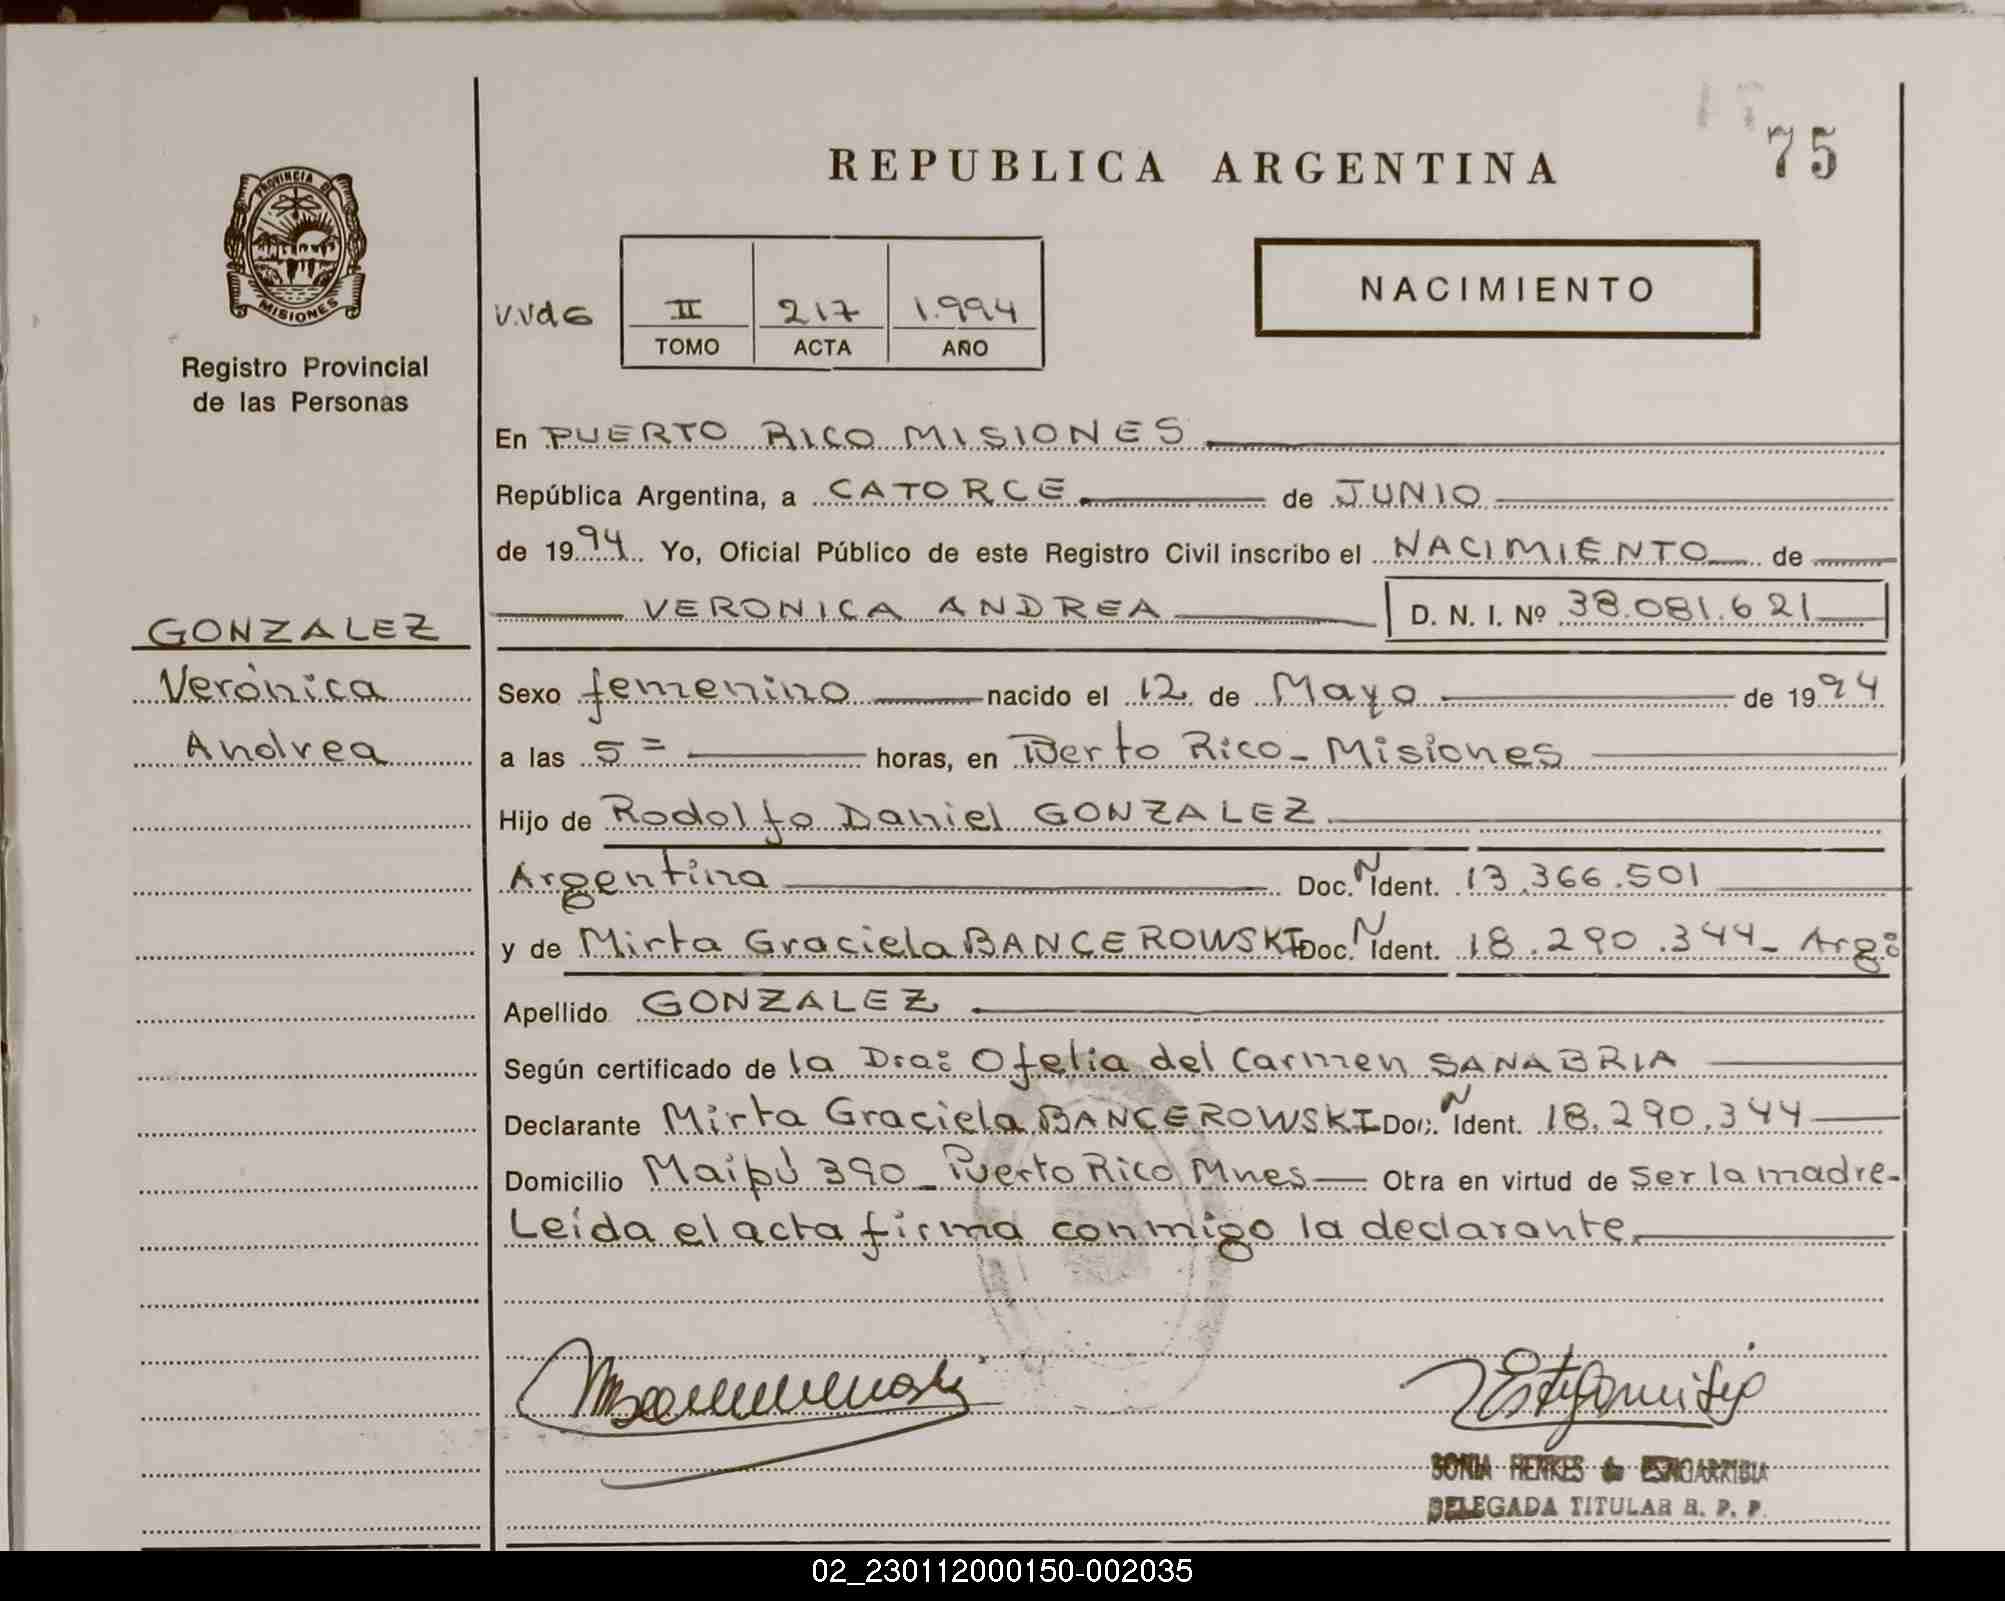 REPUBLICA ARGENTINA
75
PROVINCIA DE
MISIONES
Registro Provincial
de las Personas
V.VdG
II 217 1.994
TOMO ACTA AÑO
NACIMIENTO
En PUERTO RICO MISIONES
República Argentina, a CATORCE de JUNIO
de 1994 Yo, Oficial Público de este Registro Civil inscribo el NACIMIENTO de
VERONICA ANDREA D. N. I. Nº 38.081.621
GONZALEZ
Verónica
Andrea
Sexo femenino nacido el 12 de Mayo de 1994
a las 5= horas, en Puerto Rico - Misiones
Hijo de Rodolfo Daniel GONZALEZ
Argentina Doc. N Ident. 13.366.501
y de Mirta Graciela BANCEROWSKI Doc. N Ident. 18.290.344- Arg:
Apellido GONZALEZ
Según certificado de la Dra: Ofelia del Carmen SANABRIA
Declarante Mirta Graciela BANCEROWSKI Doc. N Ident. 18.290.344
Domicilio Maipú 390 - Puerto Rico Mnes Obra en virtud de ser la madre-
Leída el acta firma conmigo la declarante.
SONIA HENKES de ESTIGARRIBIA
DELEGADA TITULAR R. P. P.
02_230112000150-002035